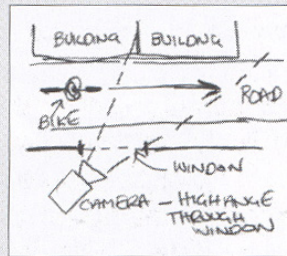 BUILDING BUILDING
ROAD
BIKE
WINDOW
CAMERA - HIGH ANGE
THROUGH
WINDOW